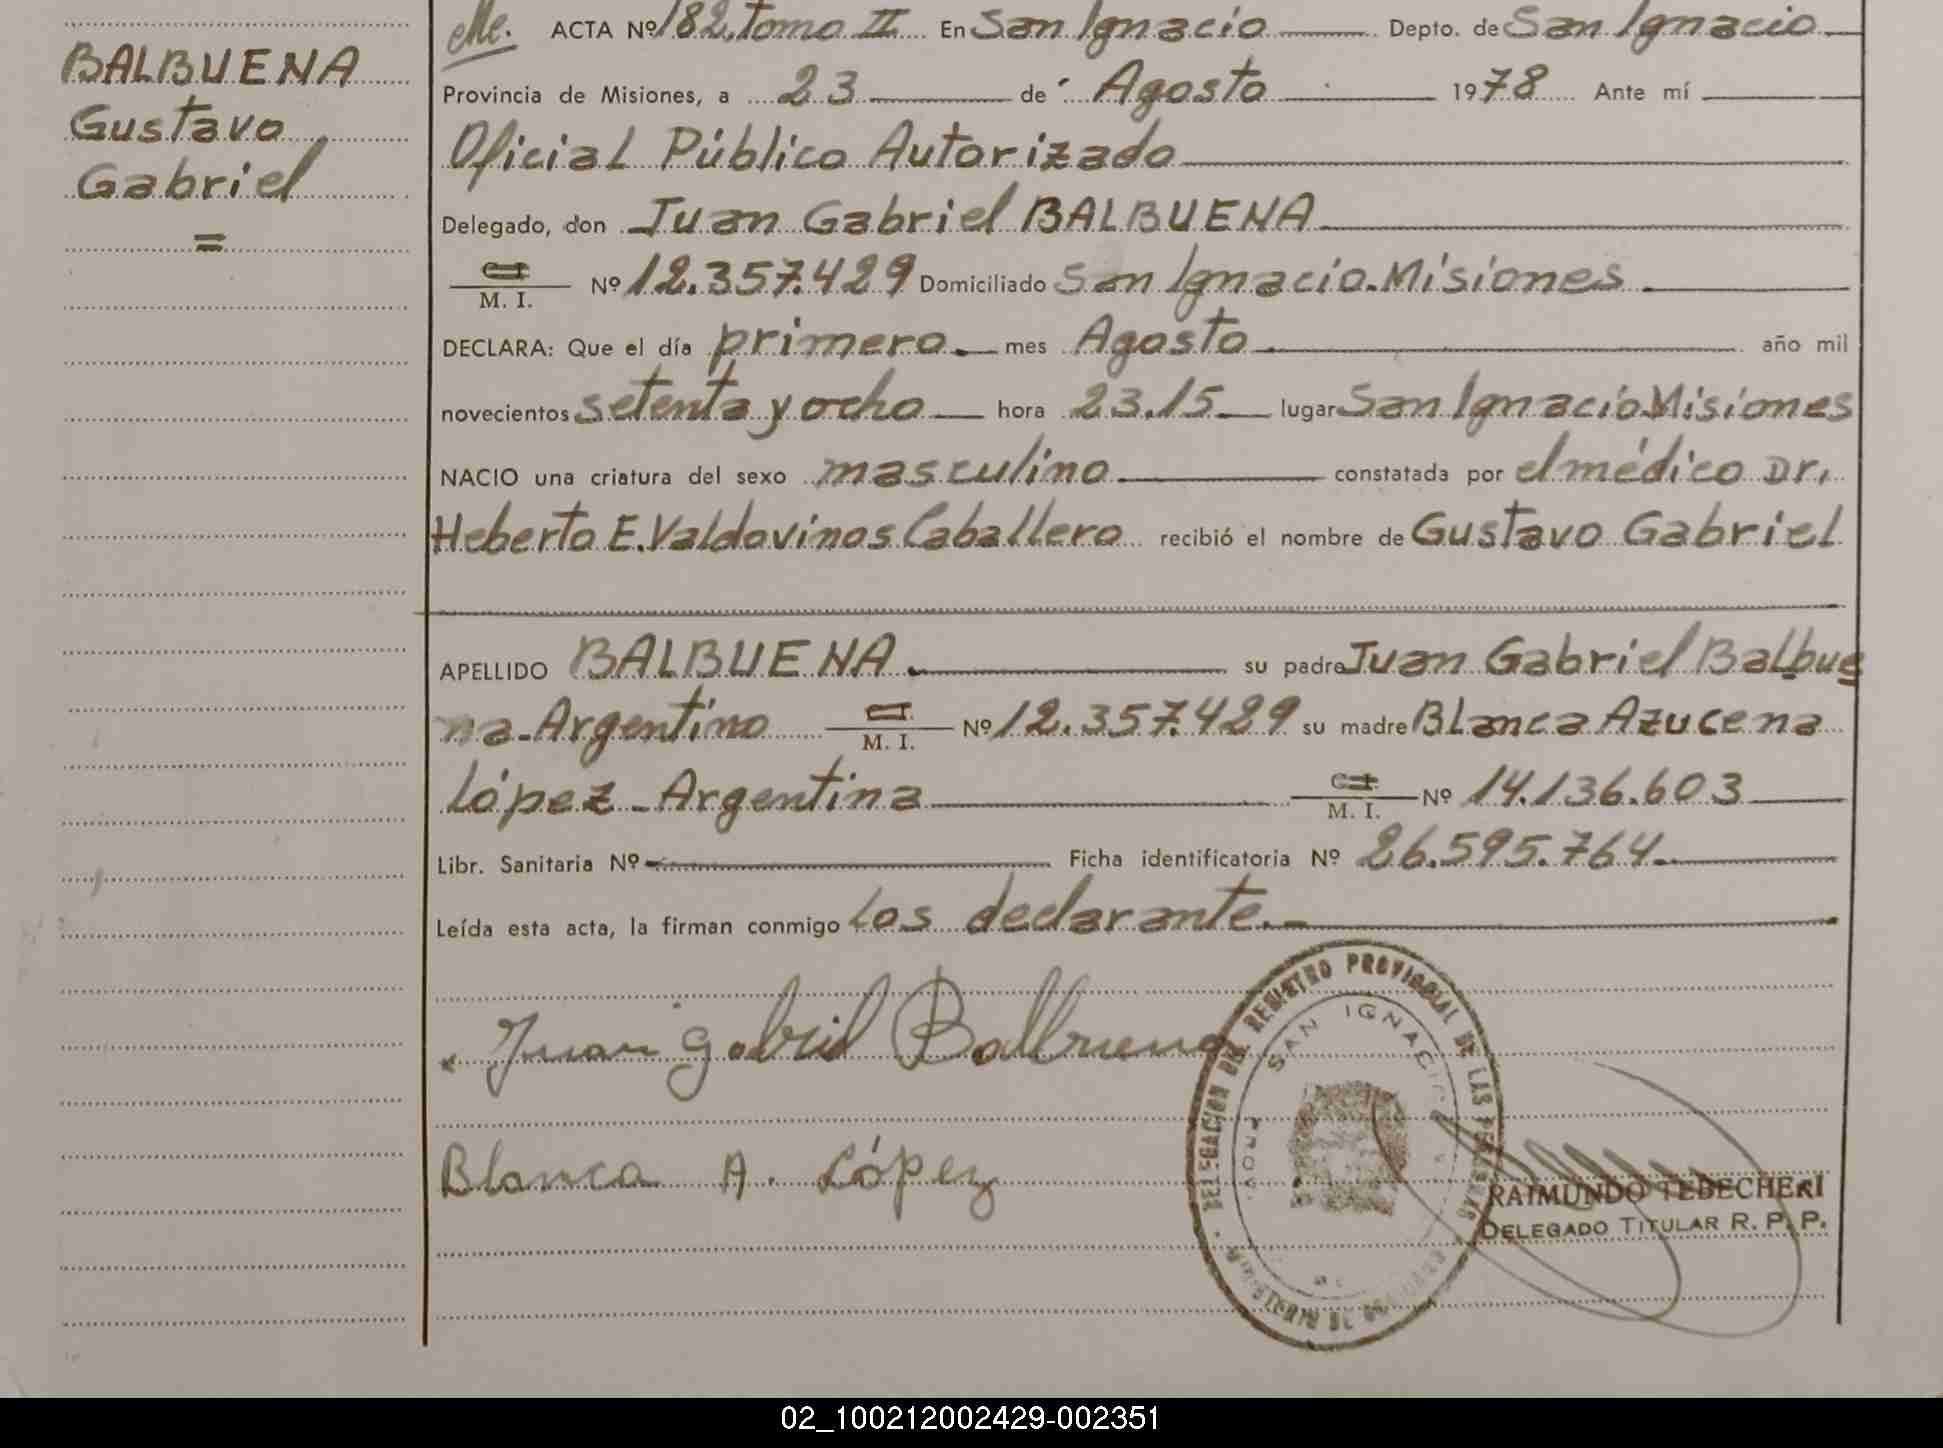 BALBUENA
Gustavo
Gabriel
=
ACTA Nº 182, Tomo II En San Ignacio Depto. de San Ignacio
Provincia de Misiones, a 23 de Agosto 1978 Ante mí
Oficial Público Autorizado
Delegado, don Juan Gabriel BALBUENA
C. I.
M. I. Nº 12.357.429 Domiciliado San Ignacio.Misiones
DECLARA: Que el día primero mes Agosto año mil
novecientos setenta y ocho hora 23.15 lugar San Ignacio Misiones
NACIO una criatura del sexo masculino constatada por el médico Dr.
Heberto E. Valdovinos Caballero recibió el nombre de Gustavo Gabriel
APELLIDO BALBUENA su padre Juan Gabriel Balbue
na-Argentino C. I.
M. I. Nº 12.357.429 su madre Blanca Azucena
López-Argentina C. I.
M. I. Nº 14.136.603
Libr. Sanitaria Nº Ficha identificatoria Nº 26.595.764
Leída esta acta, la firman conmigo los declarante.-
Juan Gabriel Balbuena
Blanca A. López
DELEGACION DEL REGISTRO PROVINCIAL DE LAS PERSONAS
SAN IGNACIO
MINISTERIO DE GOBIERNO
RAIMUNDO TEDECHERI
DELEGADO TITULAR R. P. P.
02_100212002429-002351